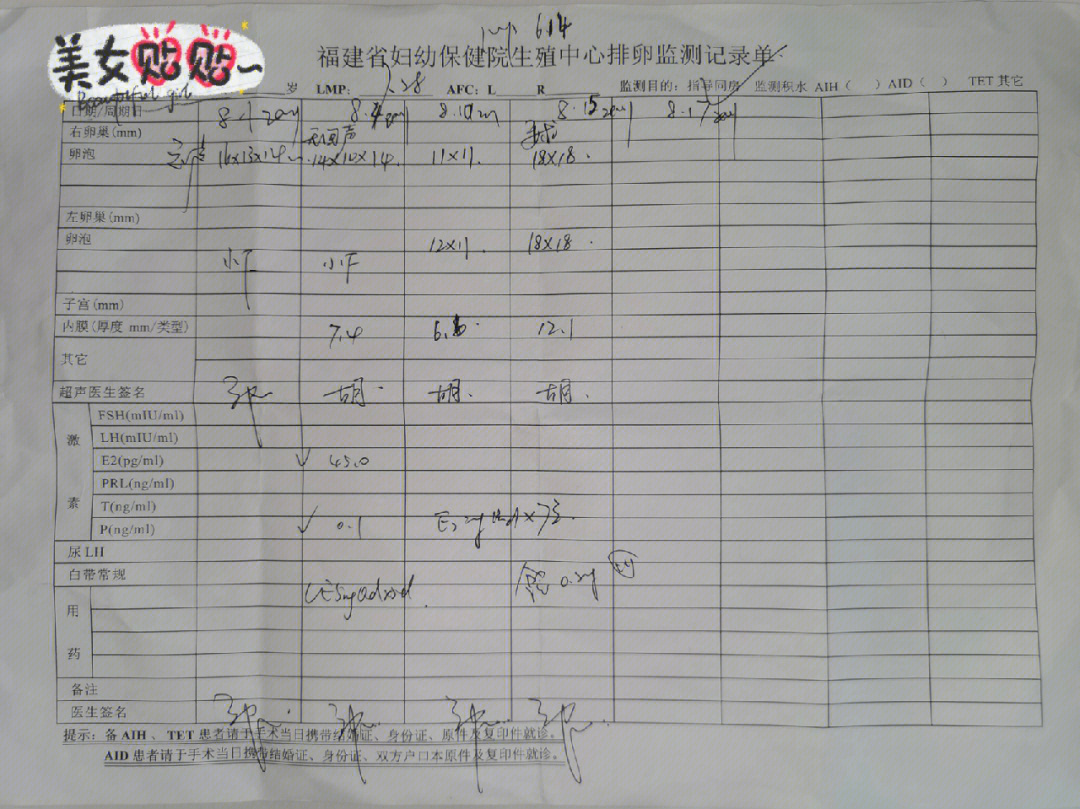 614
美女贴贴~
Beautiful girl
福建省妇幼保健院生殖中心排卵监测记录单
岁 LMP: AFC: L R 监测目的: 指导同房 监测积水 AIH ( ) AID ( ) TET 其它
日期/周期日 8.1 8.4 8.10 8.15 8.17
右卵巢(mm) 无回声
卵泡 16×13×14 14×10×14. 11×11. 18×18.
左卵巢(mm)
卵泡 12×11. 18×18.
小F 小F
子宫(mm)
内膜(厚度 mm/类型) 7.4 6.6 12.1
其它
超声医生签名 胡. 胡. 胡.
激素
FSH(mIU/ml)
LH(mIU/ml)
E2(pg/ml) ✓ 45.0
PRL(ng/ml)
T(ng/ml)
P(ng/ml) ✓ 0.1
尿LH
白带常规
用药 LE5mg
备注
医生签名
提示: 备 AIH 、 TET 患者请于手术当日携带结婚证、身份证、原件及复印件就诊。
AID 患者请于手术当日携带结婚证、身份证、双方户口本原件及复印件就诊。